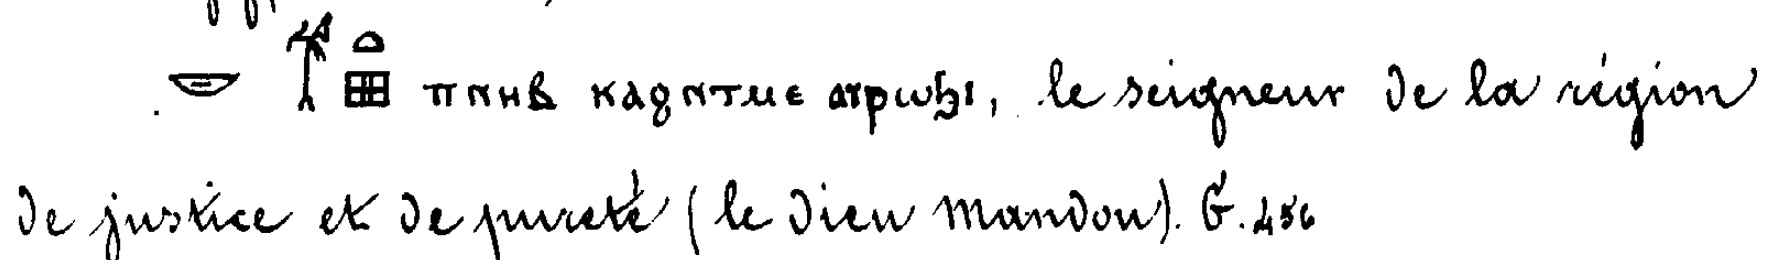 ⲡⲛⲏⲃ ⲕⲁϩⲛⲧⲙⲉ ⲟⲩⲣⲱϧⲓ, le seigneur de la région
de justice et de pureté (le dieu Mandou). G. 456